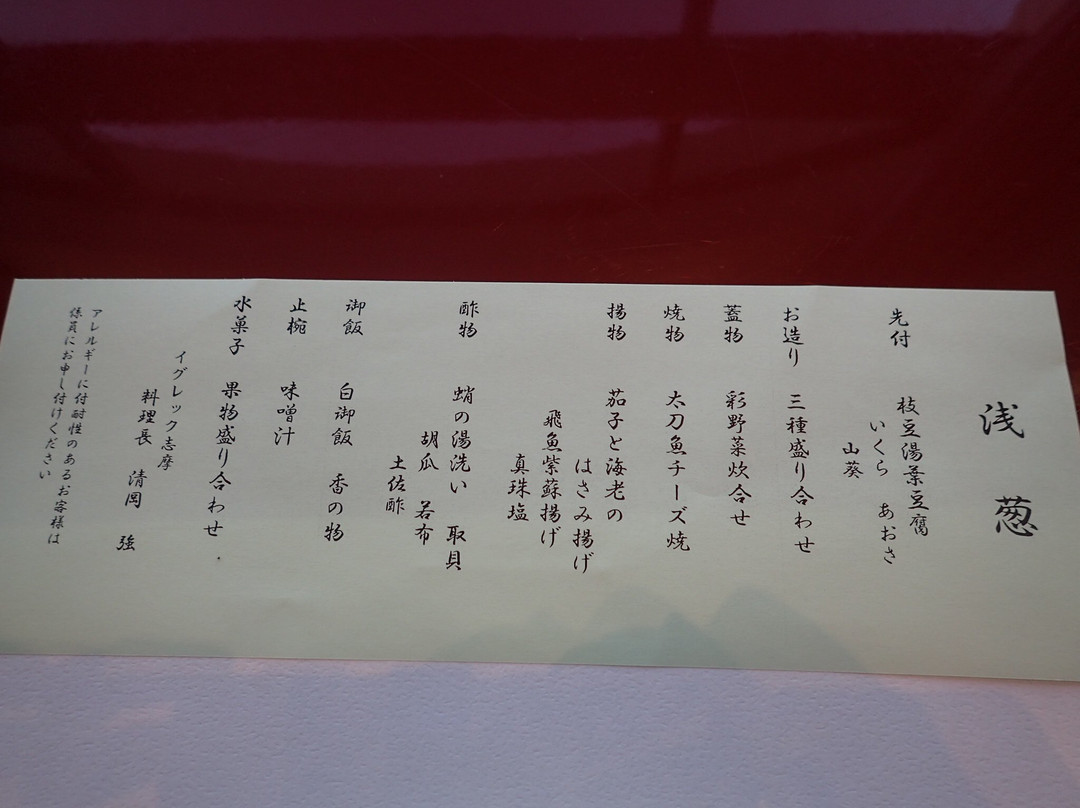 浅葱
先付 枝豆湯葉豆腐
いくら あおさ
山葵
お造り 三種盛り合わせ
蓋物 彩野菜炊合せ
焼物 太刀魚チーズ焼
揚物 茄子と海老の
はさみ揚げ
飛魚紫蘇揚げ
真珠塩
酢物 蛸の湯洗い 取貝
胡瓜 若布
土佐酢
御飯 白御飯 香の物
止椀 味噌汁
水菓子 果物盛り合わせ
イグレック志摩
料理長 清岡 強
アレルギーに付耐性のあるお客様は
係員にお申し付けください